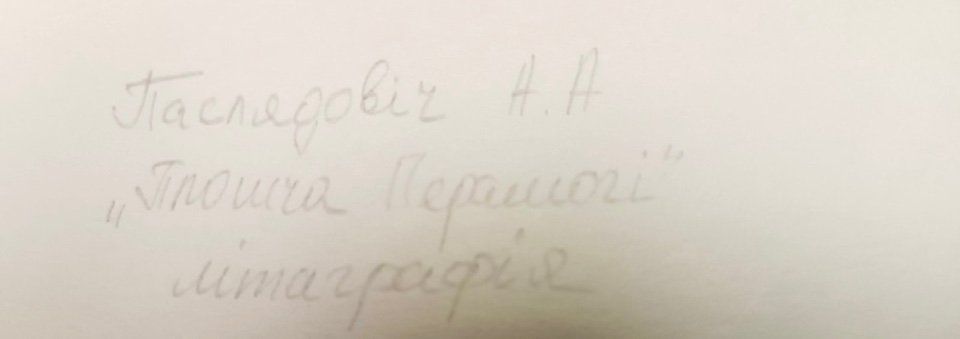 Паслядовіч А.А
„Плошча Перамогі"
літаграфія